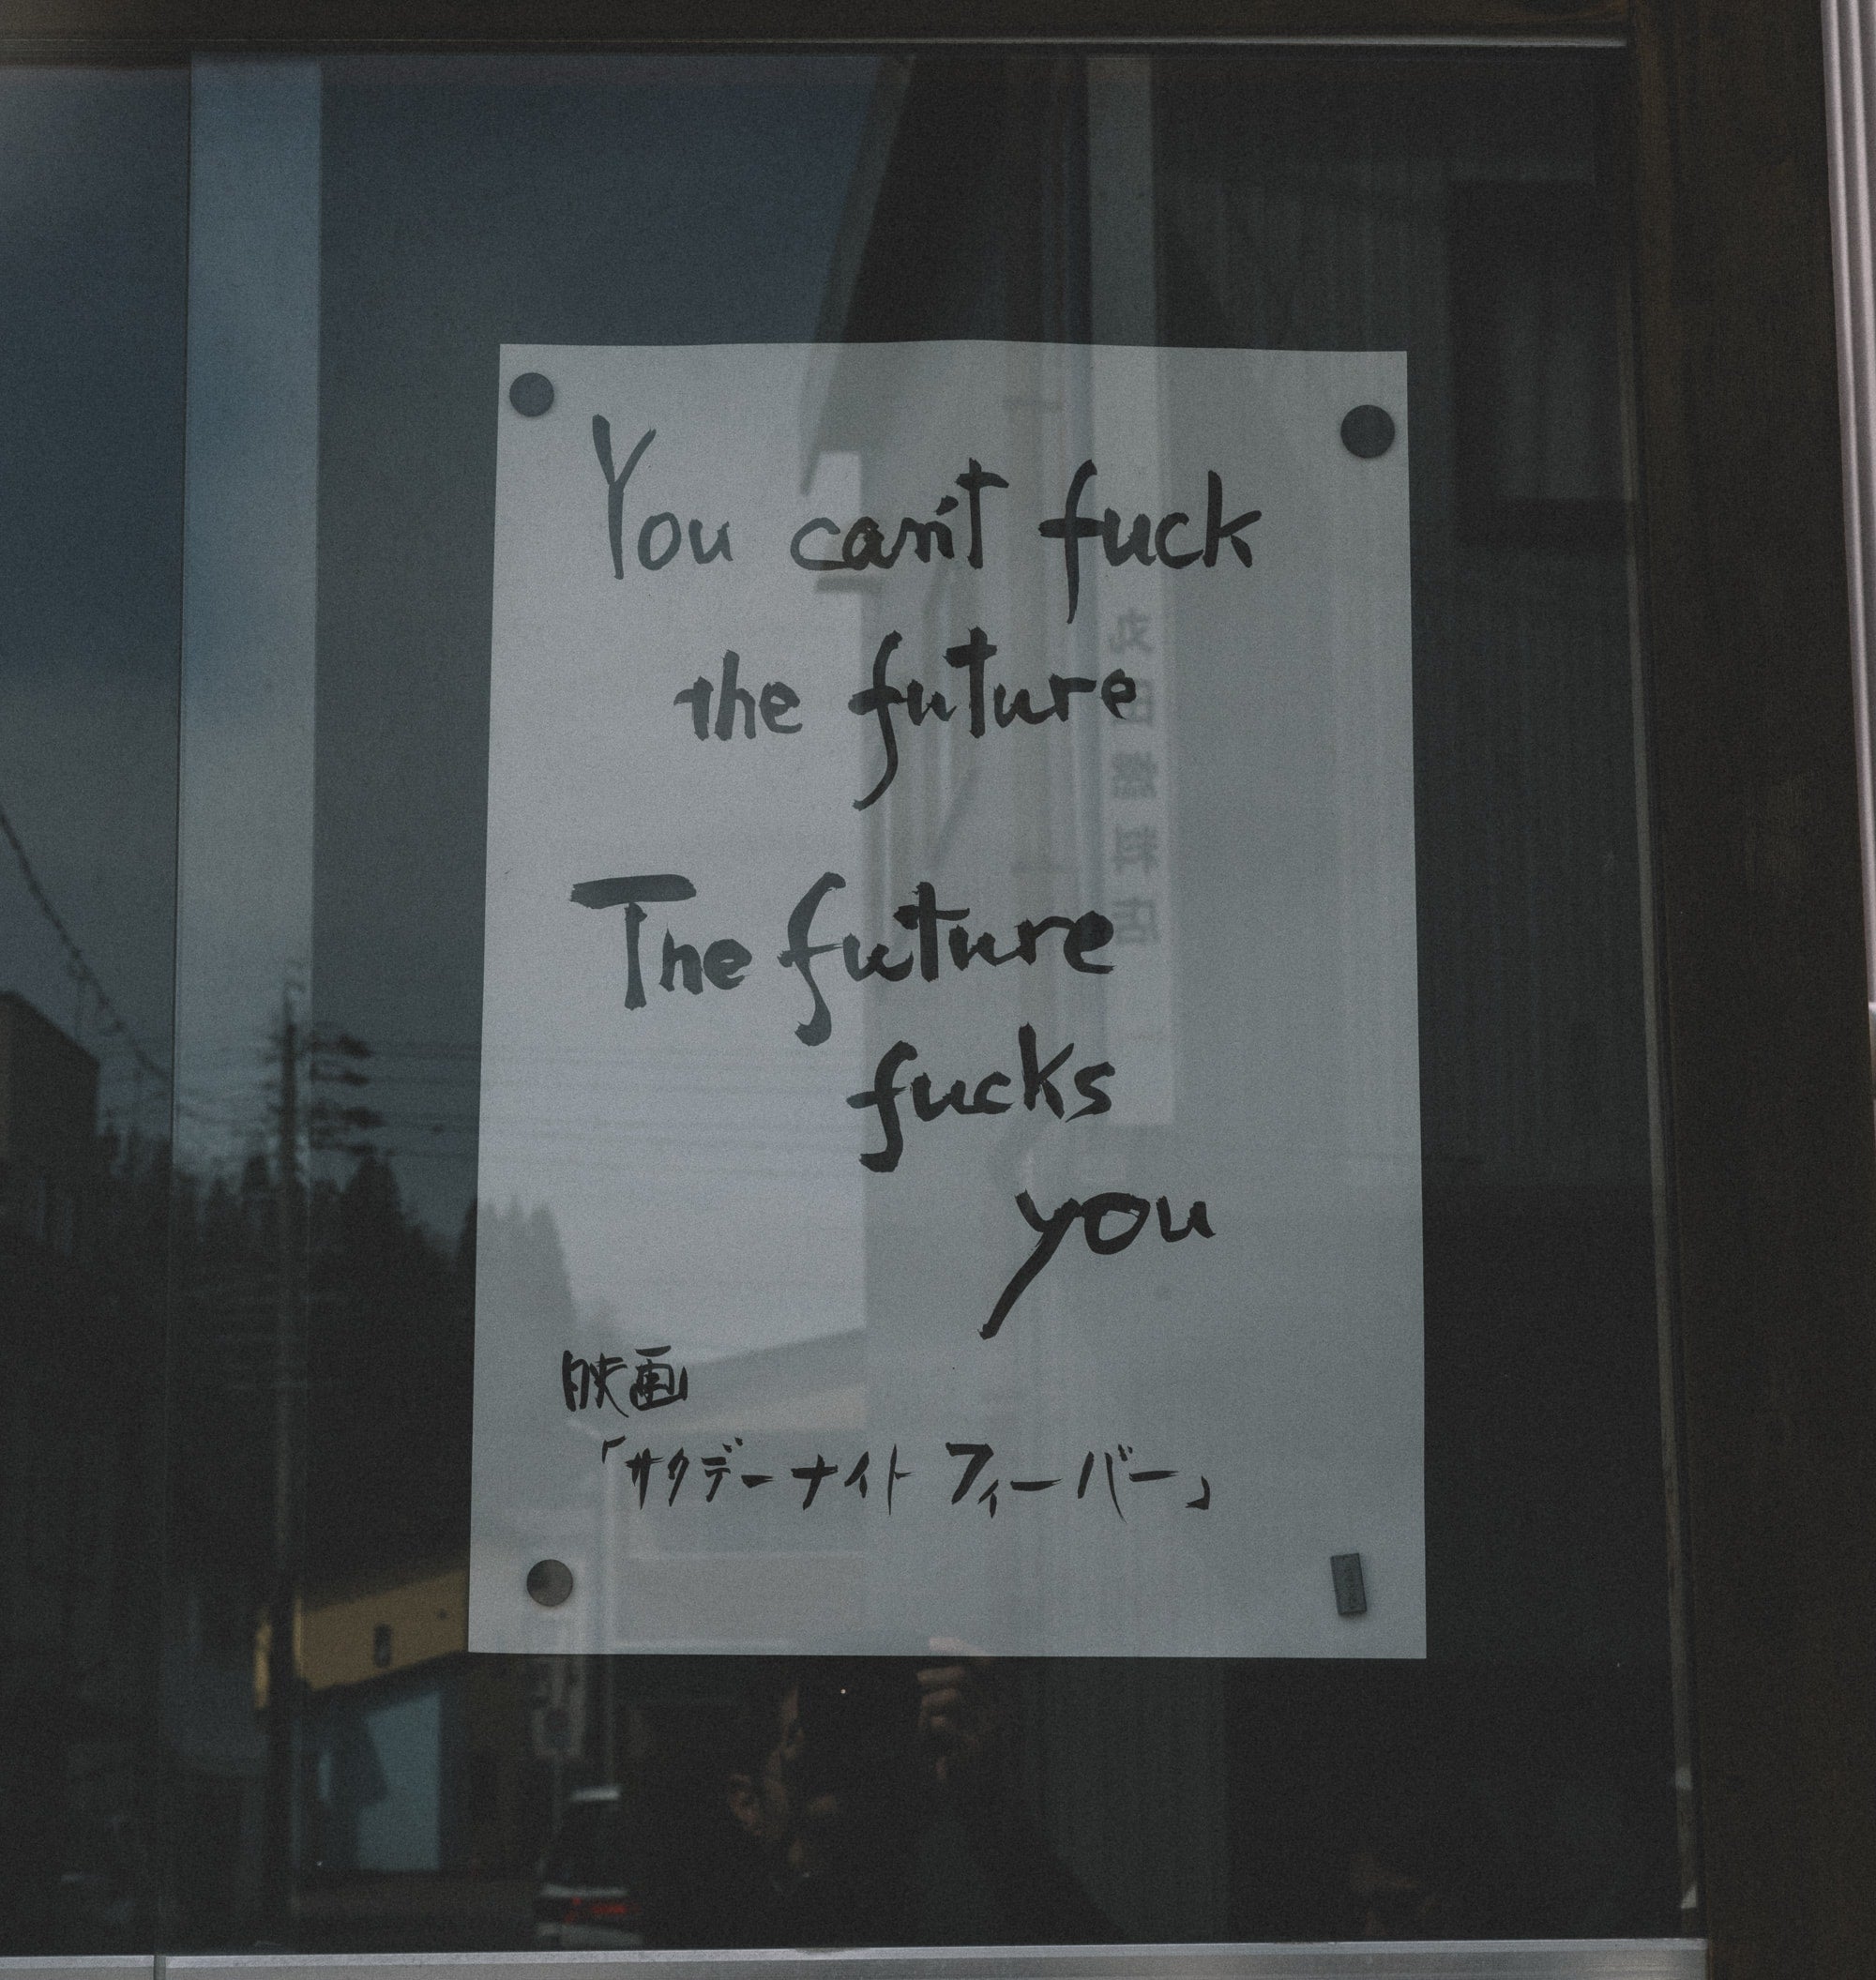 You can't fuck
the future
The future
fucks
you
映画
「サタデーナイト フィーバー」
丸田燃料店